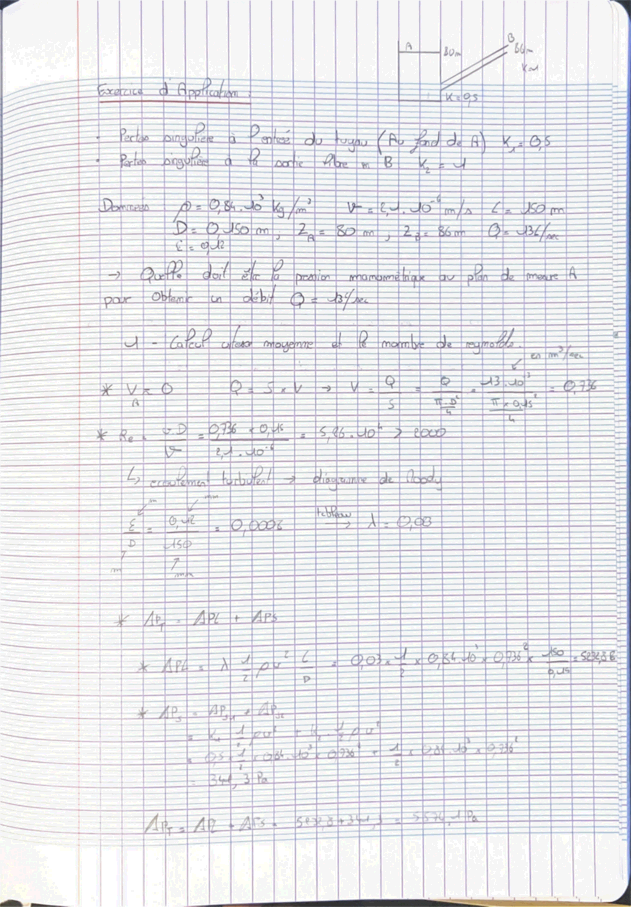 A 80m B 86m
K=1
K=0,5
Exercice d'Application :
• Pertes singulière à l'entrée du tuyau (Au fond de A) K₁ = 0,5
• Pertes singulière à la sortie libre en B K₂ = 1
Données : ρ = 0,84.10³ kg/m³ V = 2,1.10⁻⁶ m/s L = 150 m
D = 0,150 m, Z_A = 80 m, Z_B = 86m Q = 13L/sec
ε = 0,12
→ Quelle doit être la pression manométrique au plan de A
pour obtenir un débit Q = 13L/sec
1 - Calcul moyenne et le nombre de reynolds.
en m³/sec
* V_A ≈ 0 Q = S × V → V = Q/S = Q/(π.D²/4) = 13.10⁻³/(π×0,15²/4) = 0,736
* Re = VD/V = 0,736 × 0,15/2,1.10⁻⁶ = 5,26.10⁴ > 2000
↳ ecoulement turbulent → diagramme de Moody
m mm
ε/D = 0,12/150 = 0,0008 tableau → λ = 0,03
m mm
* ΔP_T = ΔPL + ΔPS
* ΔPL = λ 1/2 ρ v² L/D = 0,03 × 1/2 × 0,84.10³ × 0,736² × 150/0,15 =
* ΔP_S = ΔP_S1 + ΔP_S2
= K₁ 1/2 ρ v² + K₂ 1/2 ρ v²
= 0,5 × 1/2 × 0,84.10³ × 0,736² + 1/2 × 0,84.10³ × 0,736²
= 341,3 Pa
ΔP_T = ΔPL + ΔPS = + 341,3 =